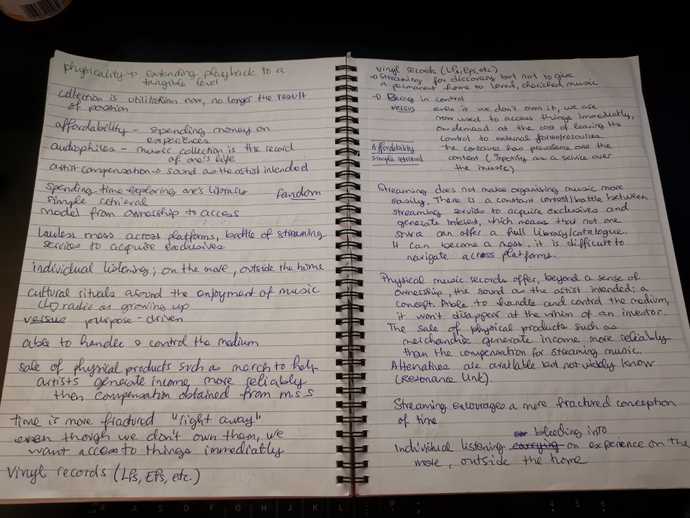 physicality → extending playback to a
tangible level
collection is utilization now, no longer the result
of position
affordability – spending money on
experiences
audiophiles – music collection is the record
of one's life
artist compensation → sound as the artist intended
spending time exploring one's libraries
fandom
simple retrieval
model from ownership to access
lawless mess across platforms, battle of streaming
services to acquire exclusives
individual listening; on the move, outside the home
cultural rituals around the enjoyment of music
radio as growing up
versus purpose-driven
able to handle & control the medium
sale of physical products such as merch to help
artists generate income more reliably
then compensation obtained from mss
time is more fractured "right away"
even though we don't own them, we
want access to things immediately
Vinyl records (LPs, EPs, etc.)
Vinyl records (LPs, Eps, etc.)
→ Streaming for discovery but not to give
a permanent home to loved, cherished music
→ Being in control
versus even if we don't own it, we are
now used to access things immediately,
on demand at the cost of leaving the
control to external
Affordability
the container has prevalence over the
simple retrieval
content (Importing are a service over
the music)
Streaming does not make organising music more
easily. There is a constant contest/battle between
streaming services to acquire exclusives and
generate interest, which means that not one
source can offer a full library/catalogue.
It can become a mess, it is difficult to
navigate across platforms.
Physical music records offer, beyond a sense of
ownership, the sound as the artist intended: a
concept. Able to handle and control the medium,
it won't disappear at the whim of an investor.
The sale of physical products such as
merchandise generate income more reliably
than the compensation for streaming music.
Alternatives are available but not widely know
(Resonance link).
Streaming encourages a more fractured conception
of time
bleeding into
Individual listening carrying on experience on the
move, outside the home